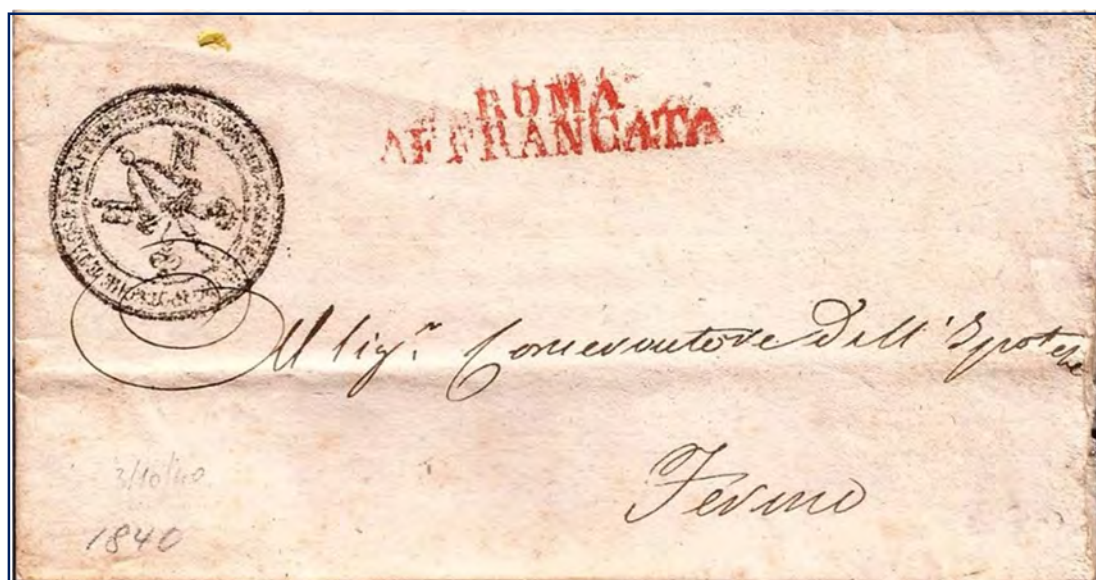 ROMA
AFFRANCATA
Al Sig.r Conservatore Dell'Ipoteche
Fermo
3/10/40
1840